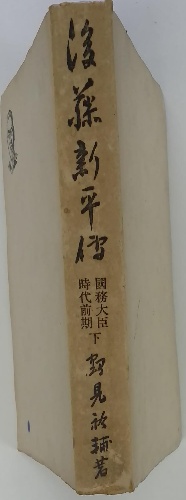 後藤新平傳
國務大臣
時代前期
下
鶴見祐輔著